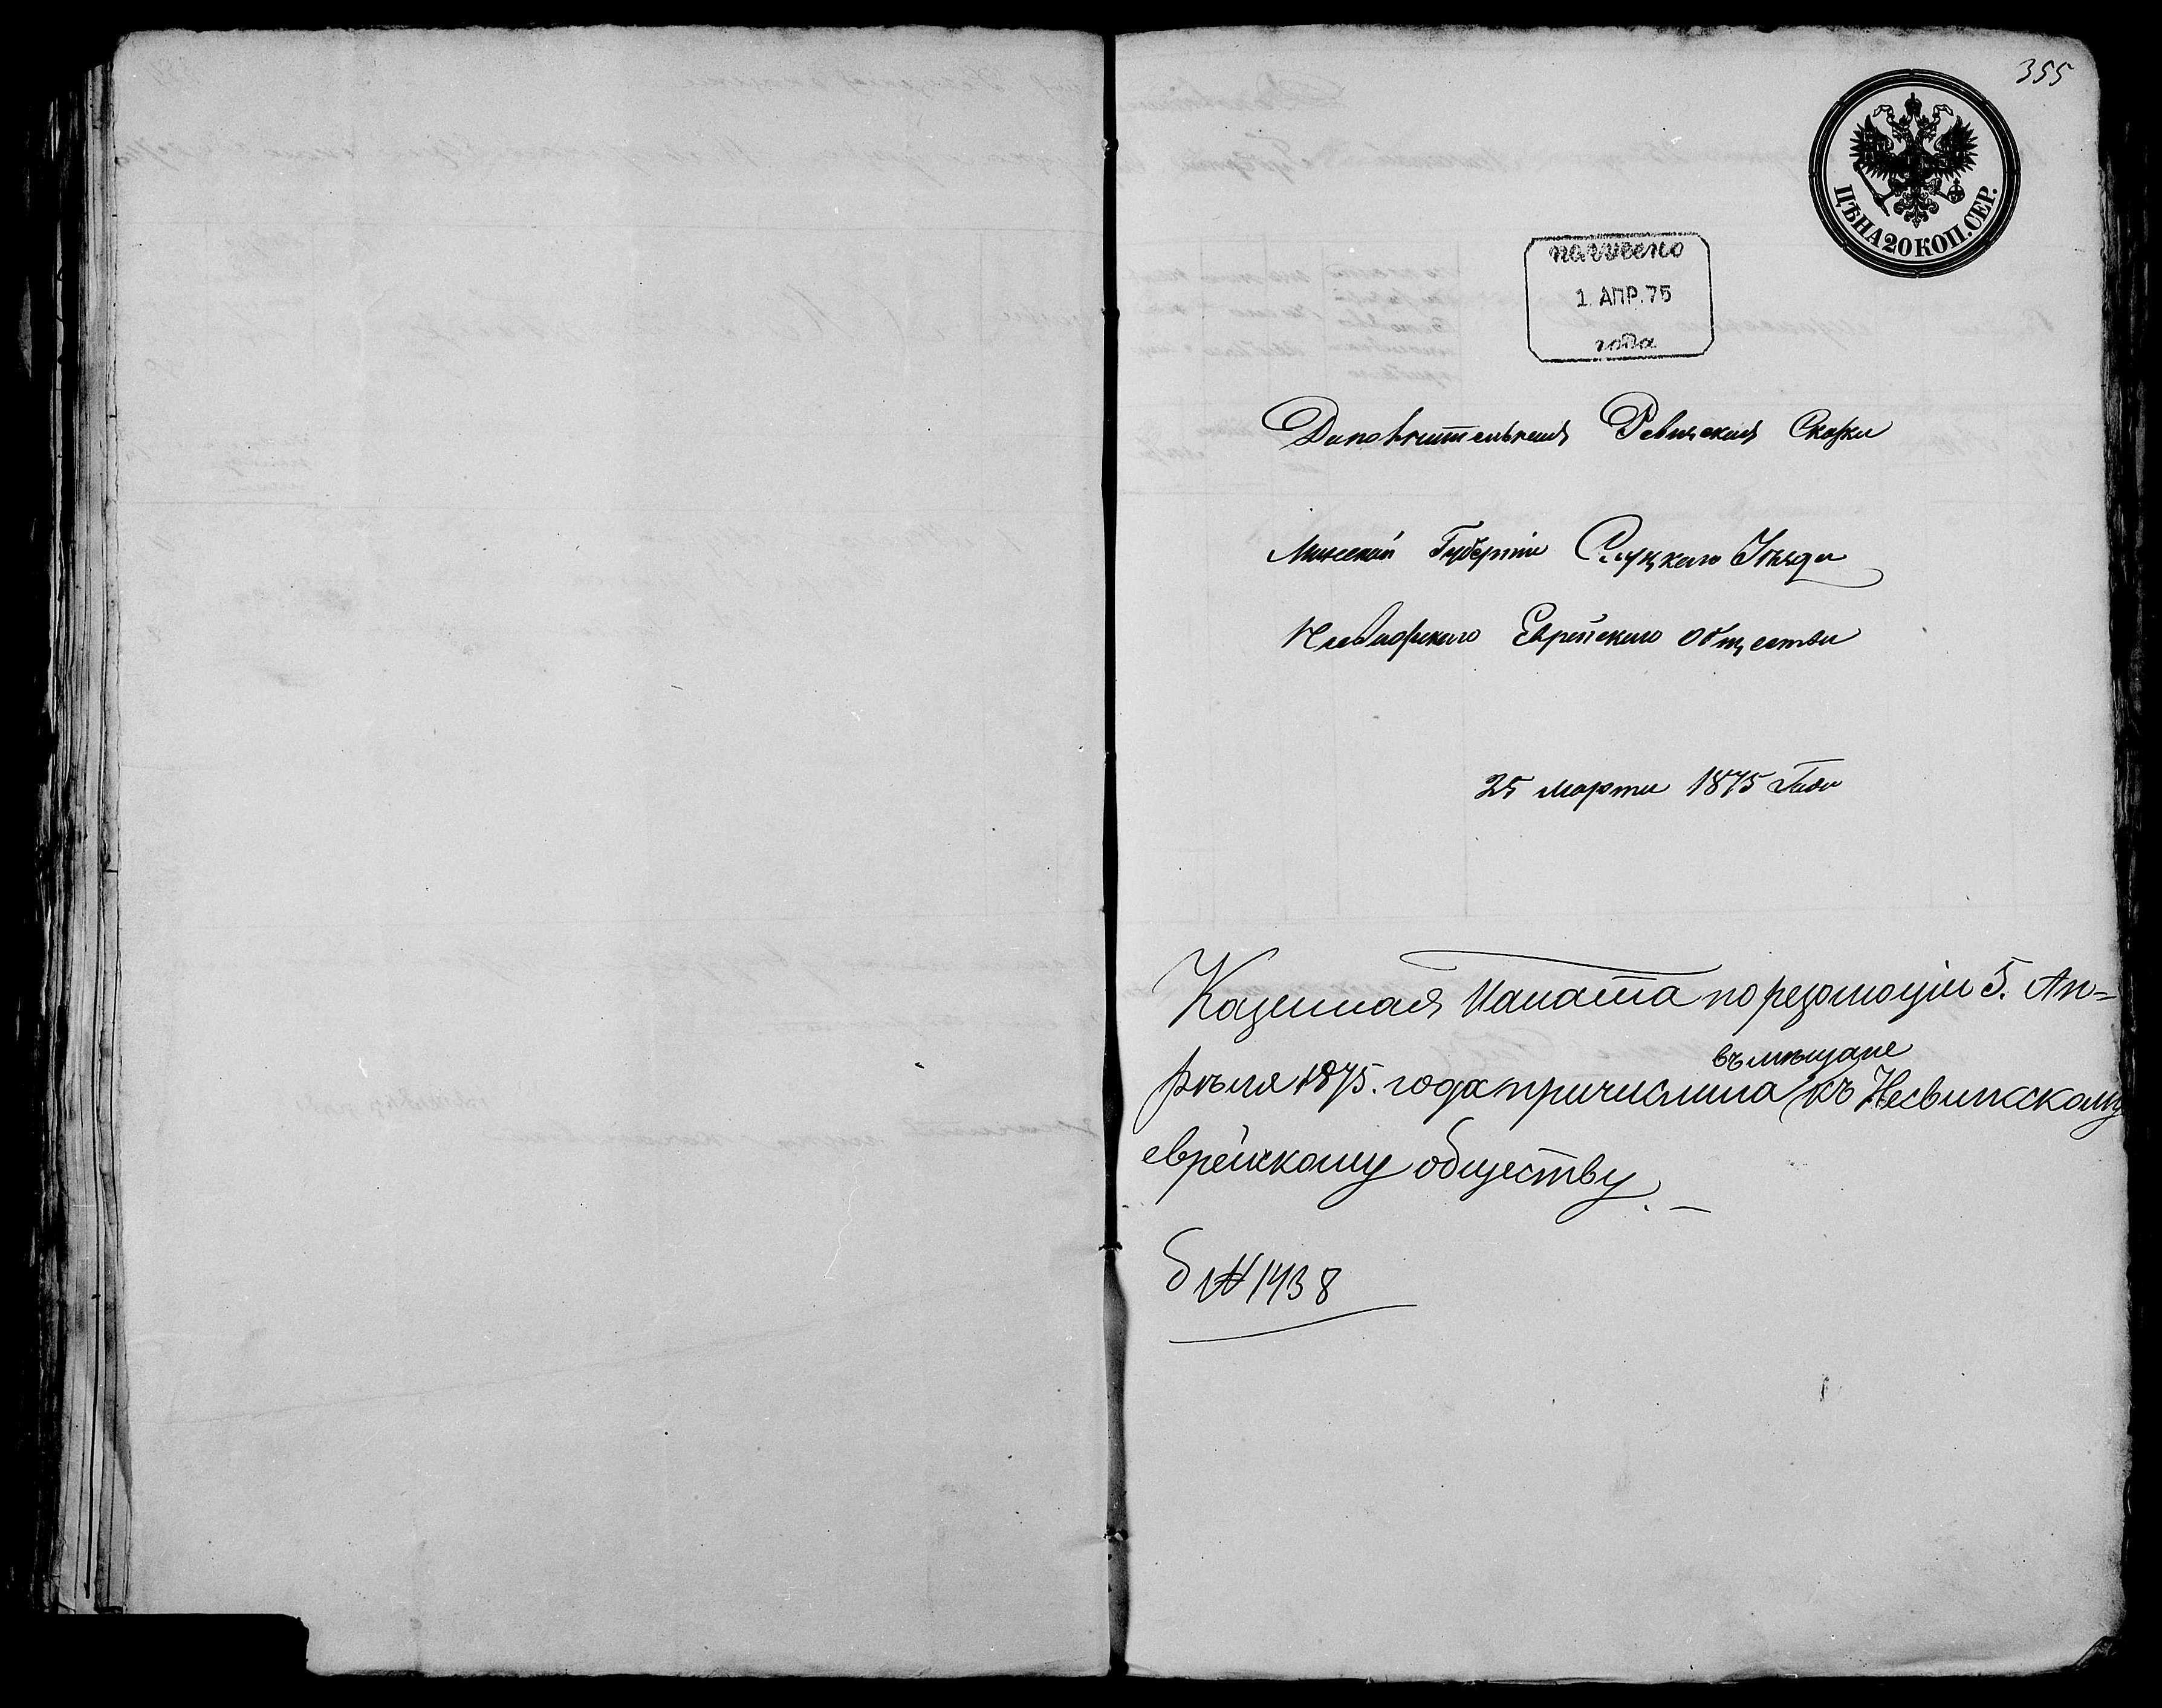 355
ЦѢНА 20 КОП. СЕР.
1. АПР. 75
года
Дополнительная Ревизская Сказка
Минской Губерніи Слуцкаго Уѣзда
Несвижскаго Еврейскаго Общества
25 марта 1875 Года
Казенная Палата по резолюціи 5. Ап=
въ мѣщане
рѣля 1875. года причислила къ Несвижскому
еврейскому обществу. —
№ 1438